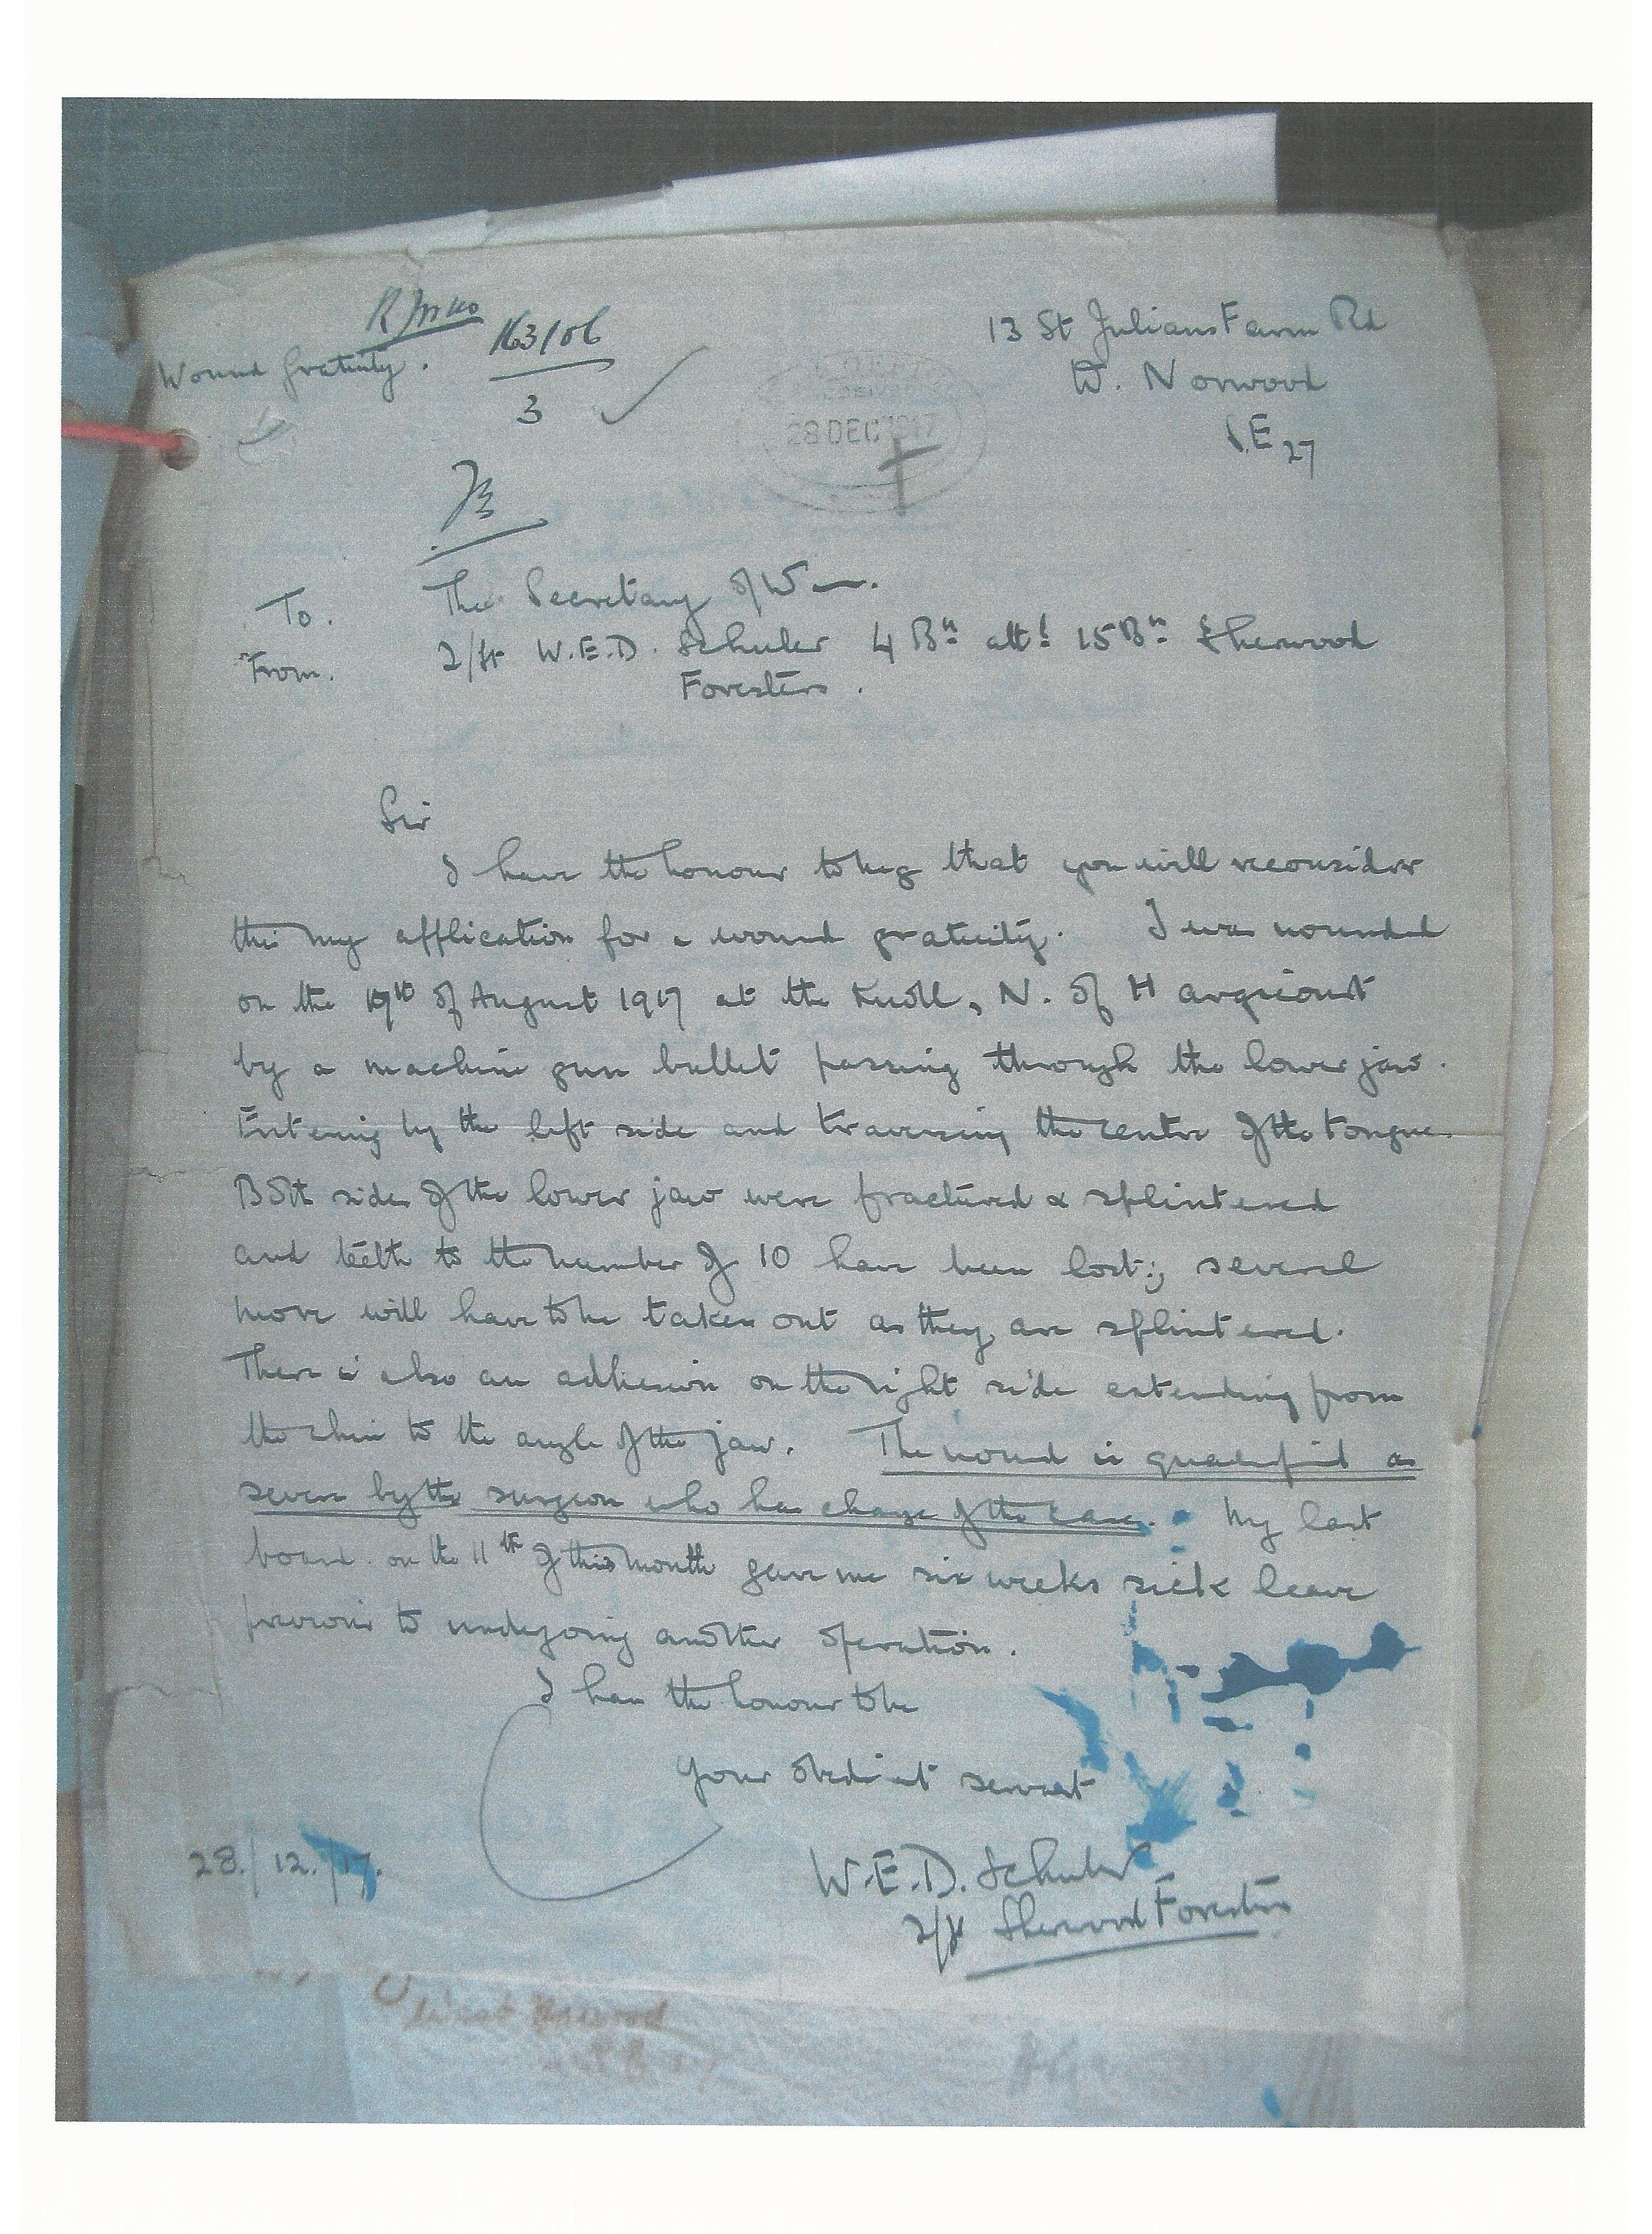 Wound Gratuity.
163/06
3
13 St Julians Farm Rd
W. Norwood
S.E 27
28 DEC 1917
To. The Secretary of War.
From. 2/Lt W.E.D. Schuler 4 Bn att! 15 Bn Sherwood
Foresters.
Sir
I have the honour to beg that you will reconsider
this my application for a wound gratuity. I was wounded
on the 19th of August 1917 at the Knoll, N. of Hargicourt
by a machine gun bullet passing through the lower jaw.
Entering by the left side and traversing the centre of the tongue.
Both sides of the lower jaw were fractured & splintered
and teeth to the number of 10 have been lost; several
more will have to be taken out as they are splintered.
There is also an adhesion on the right side extending from
the chin to the angle of the jaw. The wound is qualified as
severe by the surgeon who has charge of the case. My last
board on the 11th of this month gave me six weeks sick leave
previous to undergoing another operation.
I have the honour to be
your obedient servant
28./12./17.
W.E.D. Schuler
2/Lt Sherwood Foresters
West Norwood